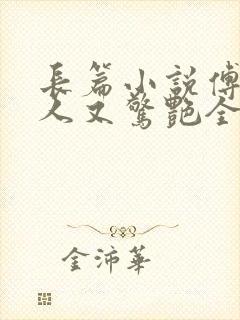 長篇小說傅
人又驚艷全
金沛華